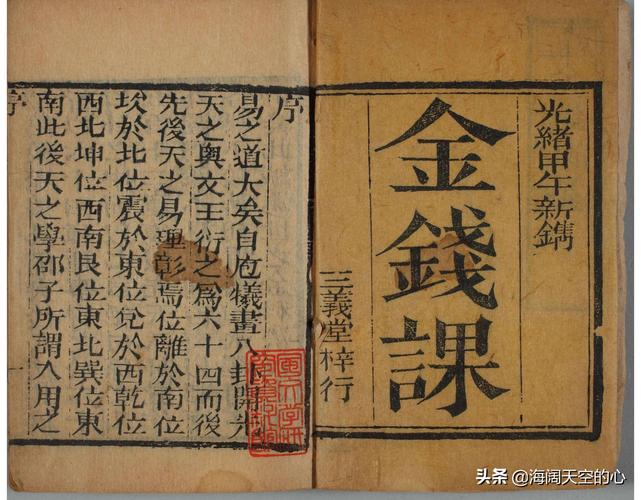 光緒甲午新鐫
金錢課
三義堂梓行
序
易之道大矣自庖犧畫八卦開先
天之奧文王衍之為六十四而後
先後天之易理彰焉位離於南位
坎於北位震於東位兌於西乾位
西北坤位西南艮位東北巽位東
南此後天之學邵子所謂入用之
序
一
头条 @海阔天空的心